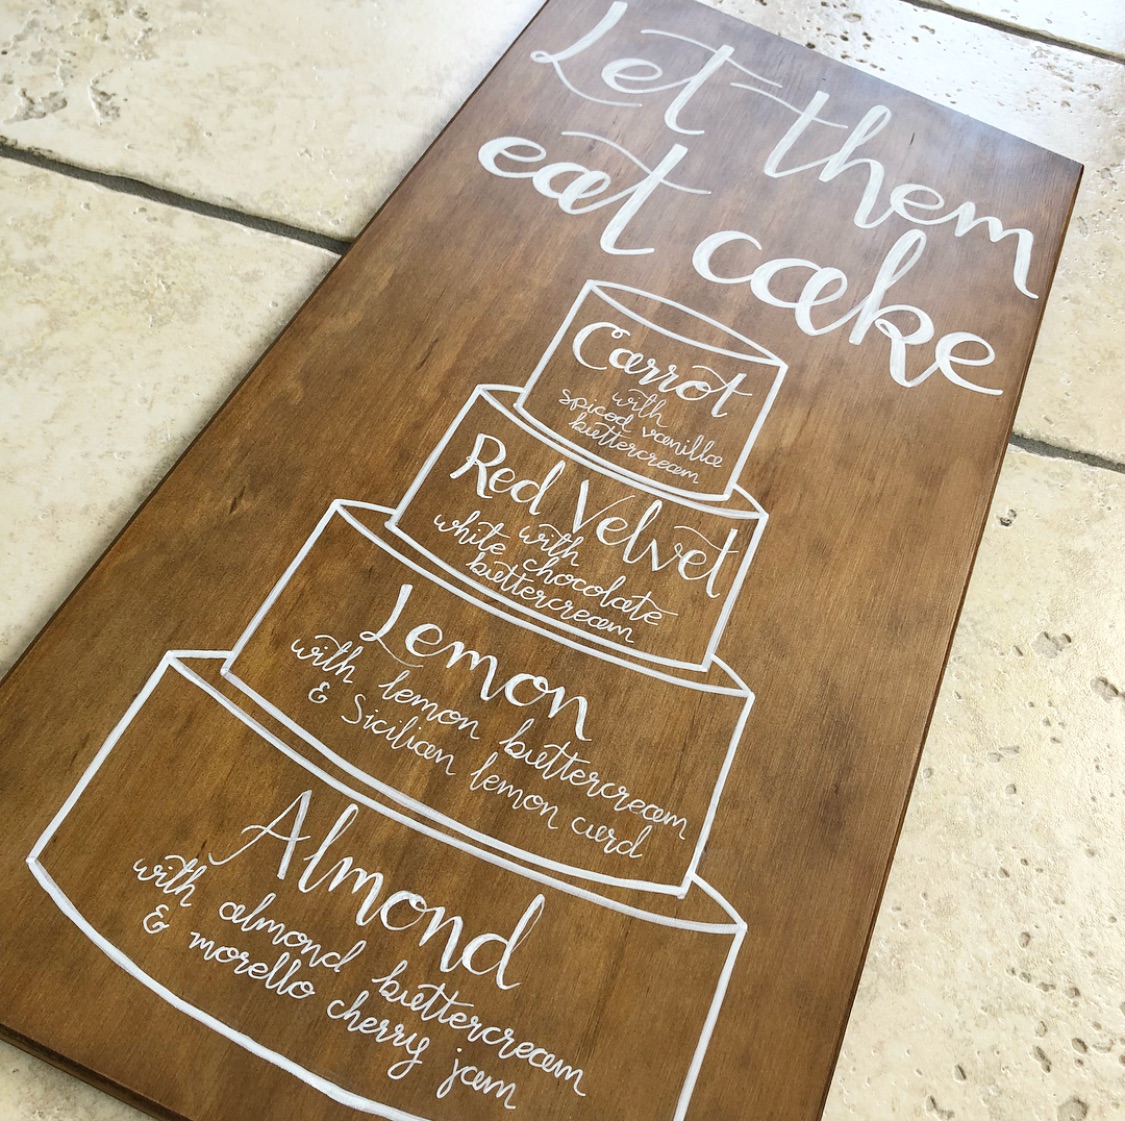 Let them
eat cake
Carrot
with
spiced vanilla
buttercream
Red Velvet
with
white chocolate
buttercream
Lemon
with lemon buttercream
& Sicilian lemon curd
Almond
with almond buttercream
& morello cherry jam